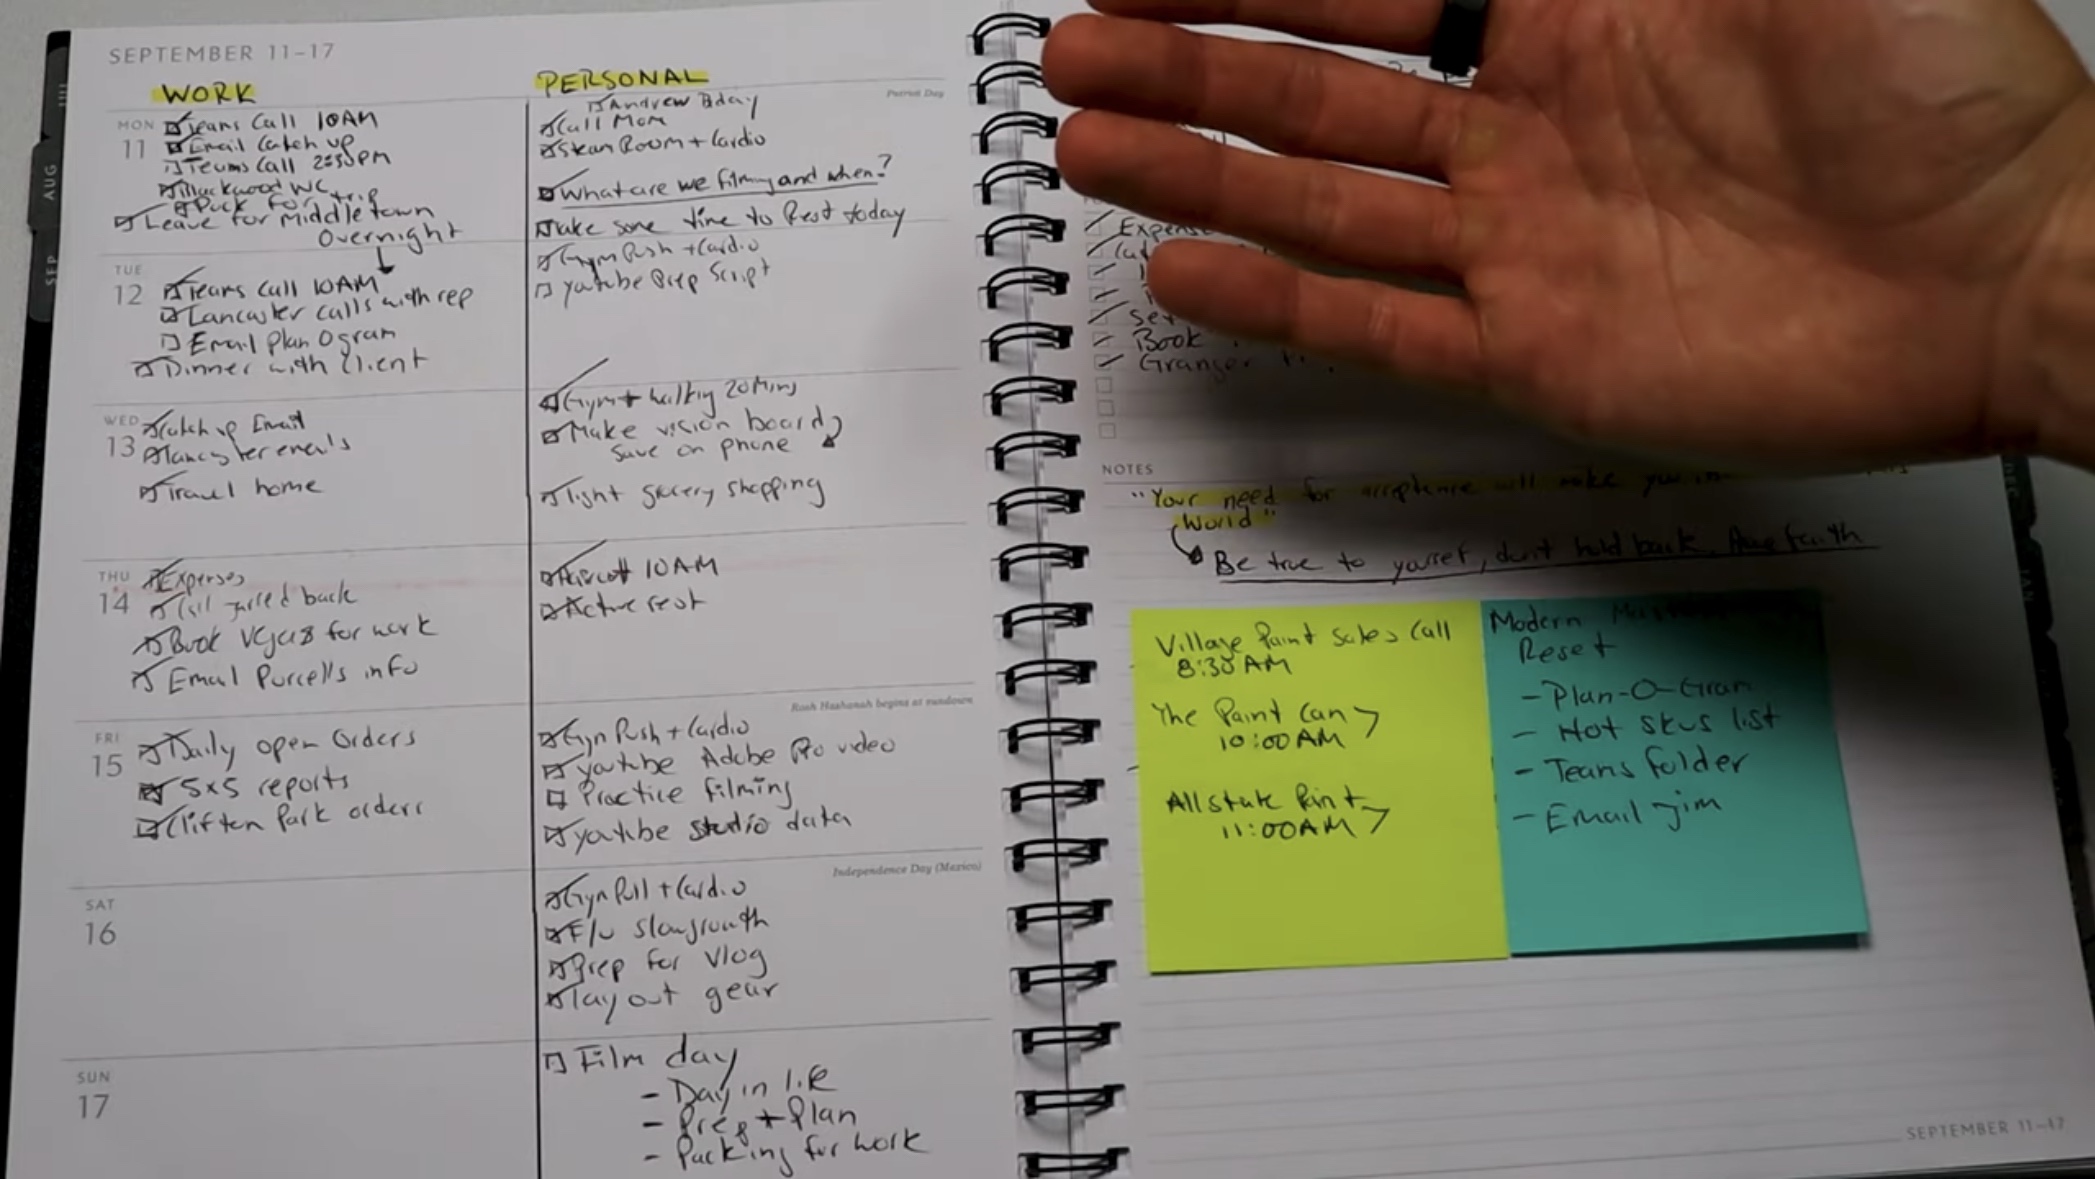 SEPTEMBER 11–17
WORK
MON
11
Teams Call 10AM
Email Catch up
Teams Call 2:30PM
WC
Pack for trip
Leave for Middletown
Overnight
TUE
12
Teams Call 10AM
Lancaster calls with rep
Email Plan O gram
Dinner with Client
WED
13
Catch up Email
Lancaster emails
Travel home
THU
14
Expenses
Call back
Book Vegas for work
Email Purcells info
FRI
15
Daily open Orders
5x5 reports
Clifton Park orders
SAT
16
SUN
17
PERSONAL
Patriot Day
Andrew Bday
Call Mom
Steam Room + Cardio
What are we filming and when?
Take some time to Rest today
Gym Push + Cardio
youtube Prep Script
Gym + walking 20 Mins
Make vision board
save on phone
light grocery shopping
Haircut 10AM
Active rest
Rosh Hashanah begins at sundown
Gym Push + Cardio
youtube Adobe Pro video
Practice filming
youtube studio data
Independence Day (Mexico)
Gym Pull + Cardio
F/u Slowgrowth
Prep for Vlog
lay out gear
Film day
- Day in life
- Prep + Plan
- Packing for work
JUL
AUG
SEP
Expense
Set
Book
Granger
NOTES
"Your need for acceptance will make you in
World"
Be true to yourself, dont hold back, Have faith
Village Paint Sales Call
8:30AM
The Paint Can >
10:00AM
Allstate Paint >
11:00AM
Modern
Reset
- Plan-O-Gram
- Hot skus list
- Teams folder
- Email Jim
JAN
SEPTEMBER 11–17